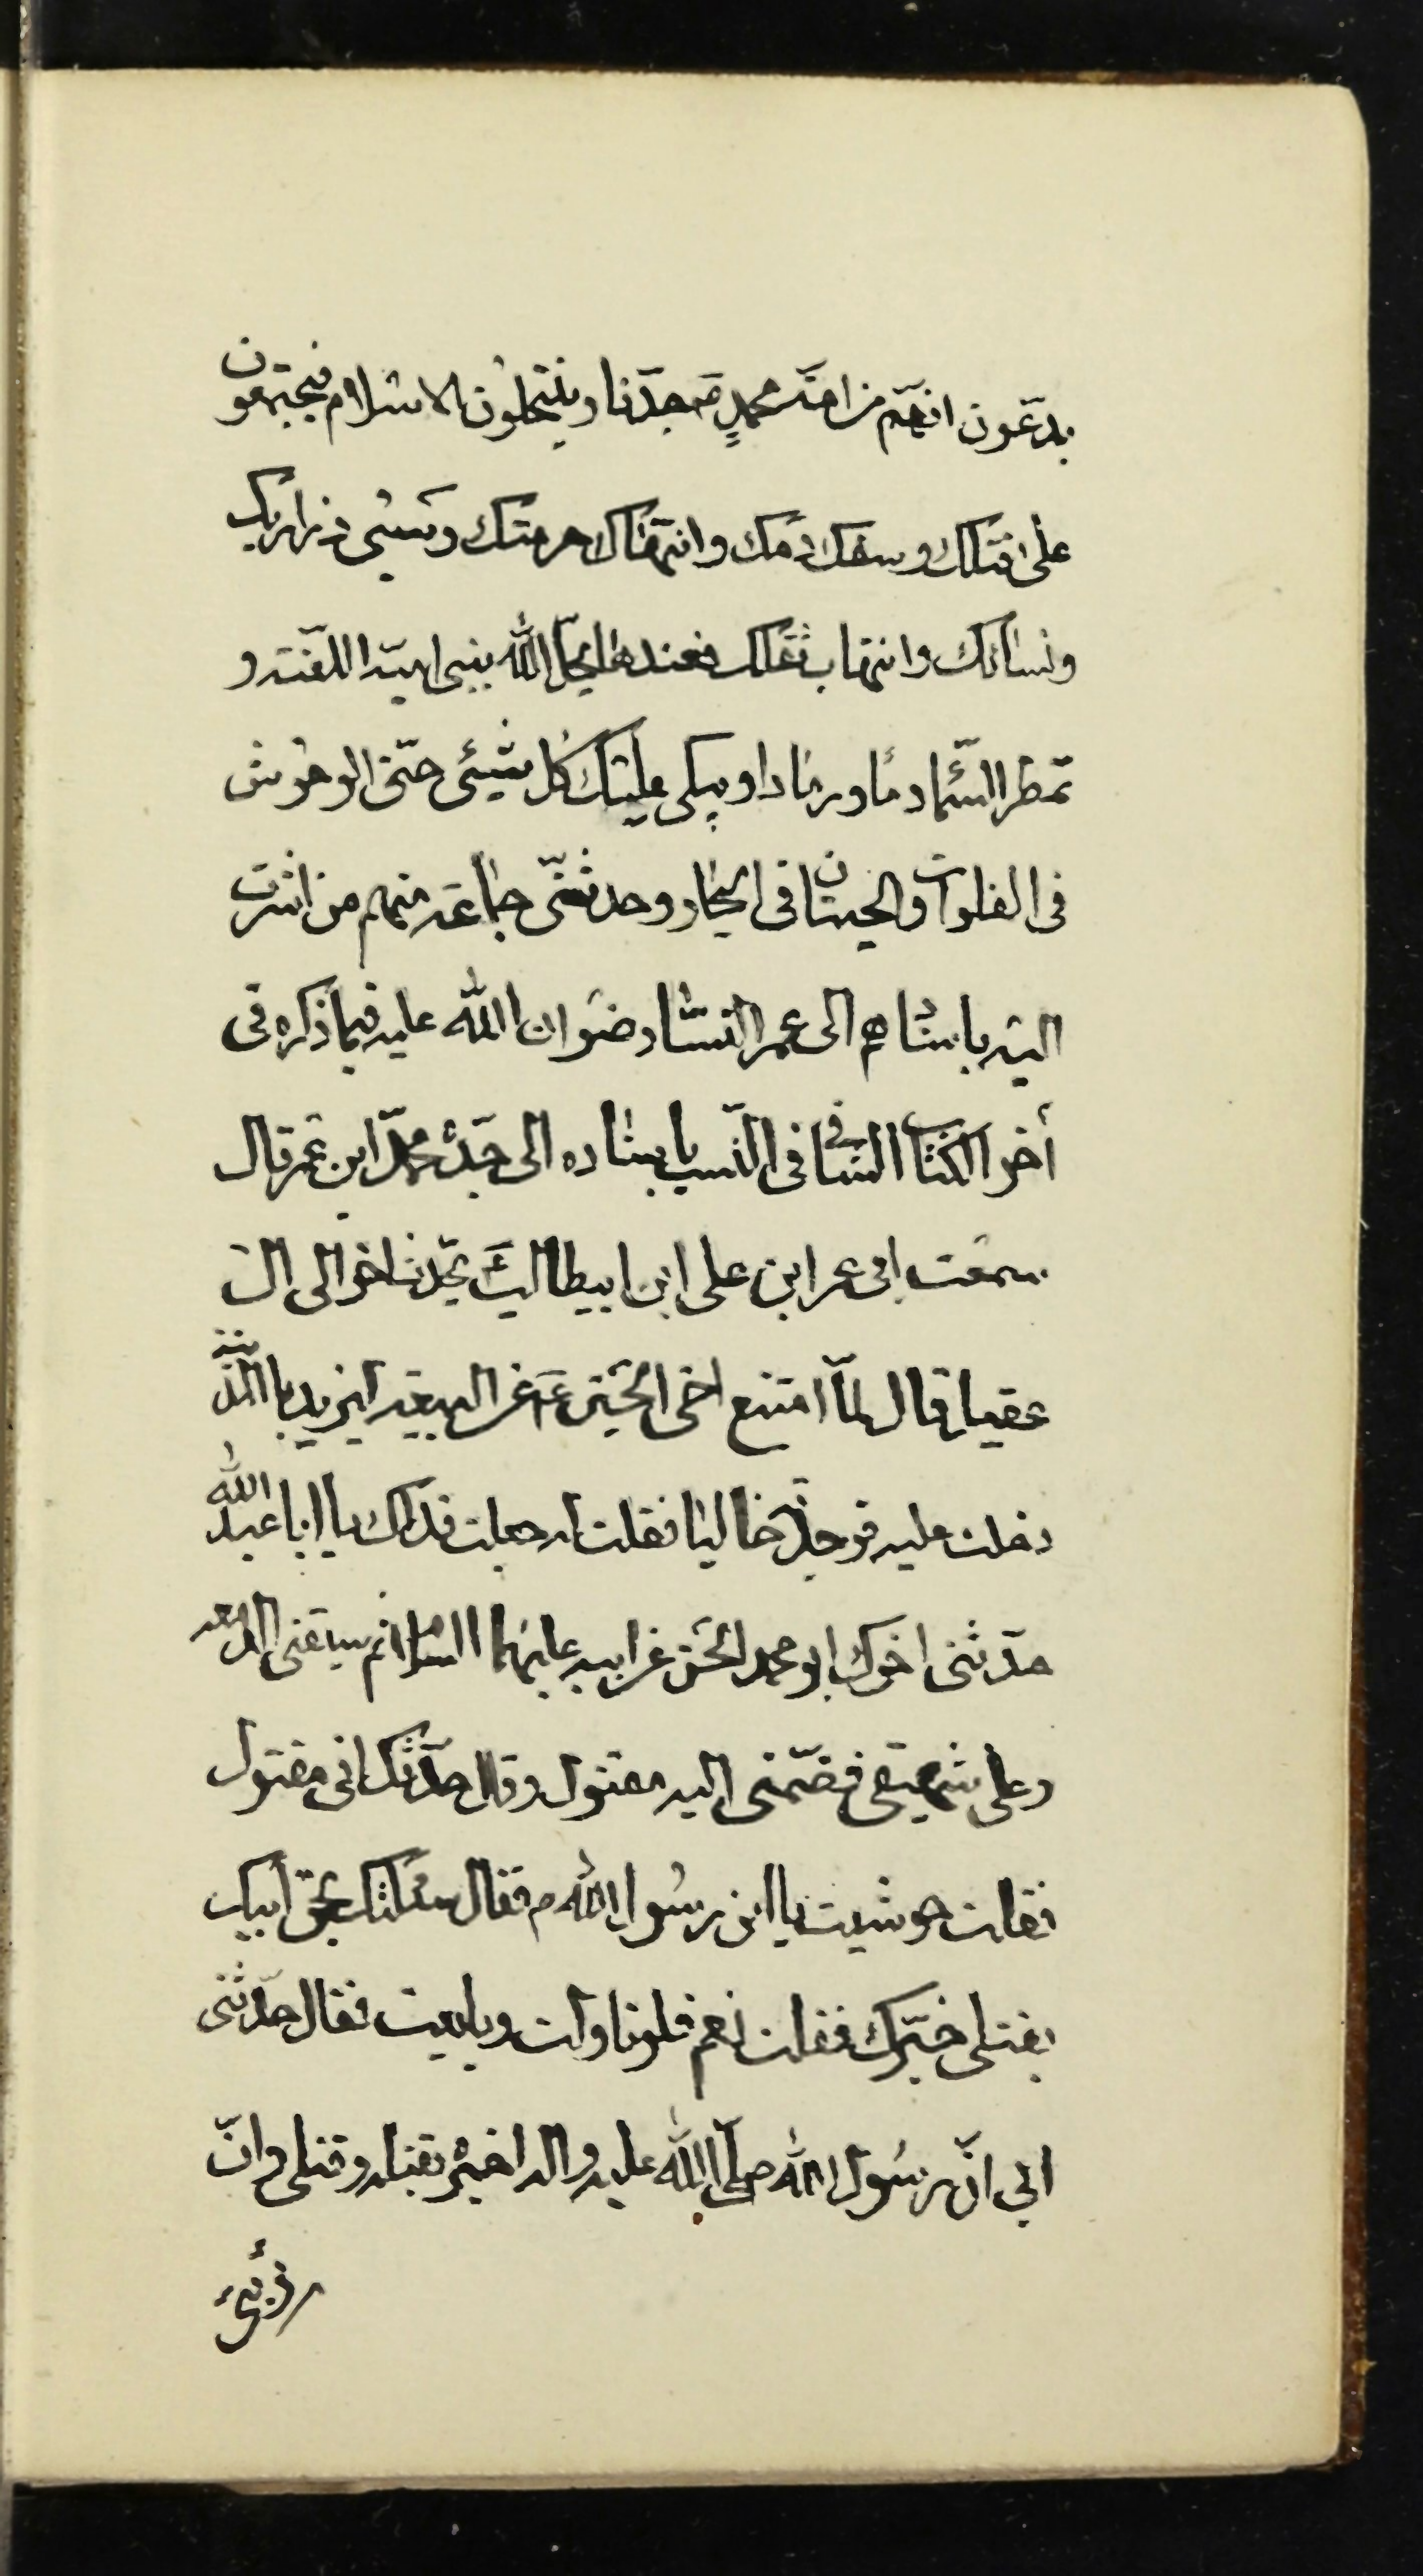 يدّعون انهّم من امّة محمدٍ ص جدّنا وينتحلون الاسلام فيجتمعون
على قتلك وسفك دمك وانتهاك حرمتك وسبى ذراريك
ونسائك وانتهاب ثقلك فعندها يحلّ الله ببنى اميّة اللّعنة و
تمطر السّماء دما ورمادا ويبكى عليك كل شيئى حتى الوحوش
فى الفلوات والحيتان فى البحار وحدثنى جماعة منهم من اشرت
اليه باسنادهم الى عمر النسّابة رضوان الله عليه فيما ذكره فى
أخر الكتاب الشافى فى النّسب باسناده الى جدّه محمّد ابن عمر قال
سمعت ابى عمر ابن على ابن ابيطالب ع يحدّث اخوالى ال
عقيل قال لمّا امتنع اخى الحسين ع عن البيعة ليزيد بالمدينة
دخلت عليه فوجدته خاليا فقلت له جعلت فداك يا ابا عبد الله
حدّثنى اخوك ابو محمد الحسن عن ابيه عليهما السلام ثم سبقنى الدمعه
وعلى شهيقى فضمّنى اليه مقتول وقال حدّثك انى مقتول
فقلت حوشيت يا ابن رسول الله ص فقال سئلتك بحق ابيك
بقتلى خبّرك فقلت نعم فلو ناولت وبايعت فقال حدّثنى
ابى انّ رسول الله صلّى الله عليه واله اخبره بقتله وقتلى وانّ